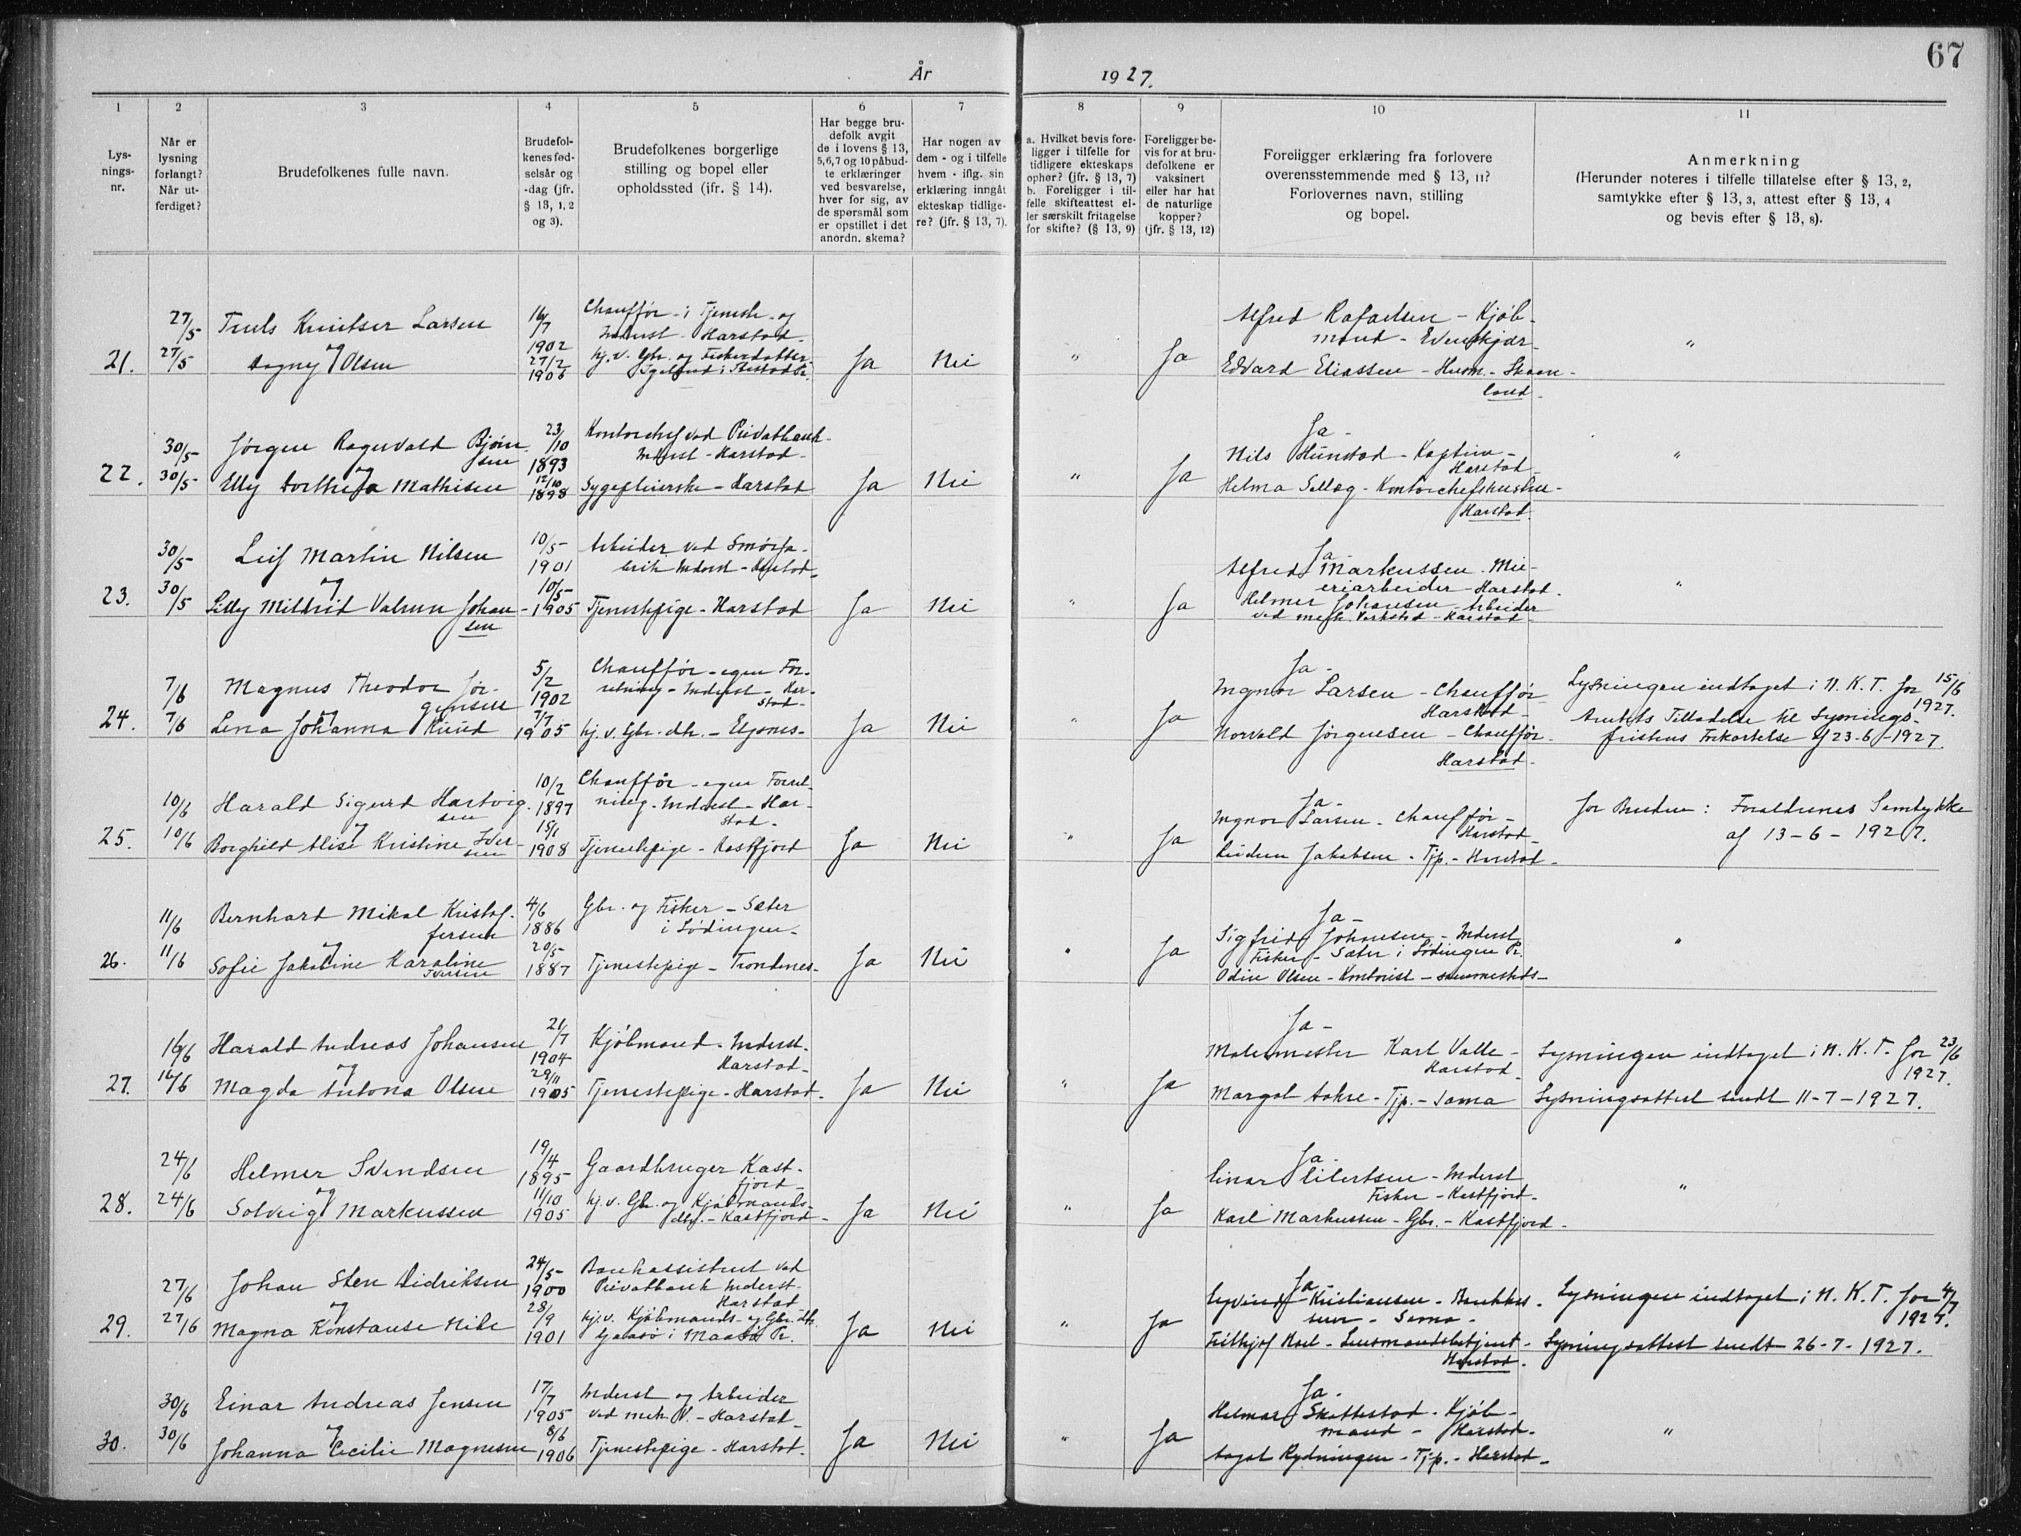 67
År 1927.
1 2 3 4 5 6 7 8 9 10 11
Lys-
nings-
nr.
Når er
lysning
forlangt?
Når ut-
ferdiget?
Brudefolkenes fulle navn.
Brudefol-
kenes fød-
selsår og
-dag (jfr.
§ 13, 1, 2
og 3).
Brudefolkenes borgerlige
stilling og bopel eller
opholdssted (ifr. § 14).
Har begge bru-
defolk avgit
de i lovens § 13,
5,6,7 og 10 påbud-
te erklæringer
ved besvarelse,
hver for sig, av
de spørsmål som
er opstillet i det
anordn. skema?
Har nogen av
dem - og i tilfelle
hvem - iflg. sin
erklæring inngått
ekteskap tidlige-
re? (jfr. § 13, 7).
a. Hvilket bevis fore-
ligger i tilfelle for
tidligere ekteskaps
ophør? (jfr. § 13, 7)
b. Foreligger i til-
felle skifteattest el-
ler særskilt fritagelse
for skifte? (§ 13, 9)
Foreligger be-
vis for at bru-
defolkene er
vaksinert
eller har hat
de naturlige
kopper?
(jfr. § 13, 12)
Foreligger erklæring fra forlovere
overensstemmende med § 13, 11?
Forlovernes navn, stilling
og bopel.
Anmerkning
(Herunder noteres i tilfelle tillatelse efter § 13, 2,
samtykke efter § 13, 3, attest efter § 13, 4
og bevis efter § 13, 8).
21.
27/5 Truls Knutsen Larsen 16/7 1902
Chauffør i Tjeneste og
Inderst - Harstad -
og
27/5 Dagny Olsen 27/2 1906
hj. v. Gbr. og Fiskerdatter
Ja Nei " Ja
Alfred Rafaelsen - Kjøb-
mand - Evenskjær -
Edvard Eliassen - Husm. - Skaan-
land.
"
22.
30/5 Jørgen Ragnvald Bjørn-
sen 23/10 1893
Kontorchef ved Privatbank
Inderst - Harstad -
og
30/5 Elly Dorthea Mathisen 12/10 1898
Sygepleierske - Harstad
Ja Nei " Ja
Ja -
Nils Hunstad - Kaptein -
Harstad -
Helma Sellæg - Kontorchefshustru -
Harstad.
"
23.
30/5 Leif Martin Nilsen 10/5 1901
Arbeider ved Smørfa-
brik Inderst - Harstad -
og
30/5 Lilly Mildrid Johan-
sen 10/5 1905
Tjenestepige - Harstad
Ja Nei " Ja
Ja -
Alfred Markussen - Mei-
eriarbeider - Harstad.
Helmer Johansen - Arbeider
ved mek. Verksted - Harstad -
"
24.
7/6 Magnus Theodor Jør-
gensen 5/2 1902
Chauffør - egen For-
retning - Inderst - Har-
stad -
og
7/6 Lena Johanna Ruud 7/7 1905
hj. v. Gbr. dtr. - Elgsnes -
Ja Nei " Ja
Ja -
Ingvar Larsen - Chauffør
Harstad -
Norvald Jørgensen - Chauffør -
Harstad -
Lysningen indtaget i N. K. T. for 15/6
1927.
Amtets Tilladelse til Lysnings-
fristens Forkortelse af 23-6-1927.
25.
10/6 Harald Sigurd Hartvig-
sen 10/2 1897
Chauffør - egen Forret-
ning - Inderst - Har-
stad -
og
10/6 Borghild Alise Kristine Iver-
sen 15/1 1908
Tjenestepige - Kastfjord
Ja Nei " Ja
Ja -
Ingvar Larsen - Chauffør -
Harstad -
Jakobsen - Tjp. - Harstad -
for Bruden: Forældrenes Samtykke
af 13-6-1927.
26.
11/6 Bernhard Mikal Kristof-
fersen 4/6 1886
Gbr. og Fisker - Sæter
i Lødingen -
og
11/6 Sofie Jakobine Karoline
Iversen 20/5 1887
Tjenestepige - Trondenes -
Ja Nei " Ja
Ja -
Sigfrid Johansen - Inderst
Fisker - Sæter i Lødingen Pr.
Odin Olsen - Kontorist - sammesteds -
"
27.
16/6 Harald Andreas Johansen 21/7 1904
Kjøbmand - Inderst -
Harstad -
og
16/6 Magda Antona Olsen 29/11 1905
Tjenestepige - Harstad.
Ja Nei " Ja
Ja -
Malermester Karl Valle -
Harstad -
Margot Aakre - Tjp. - Sama
Lysningen indtaget i N. K. T. for 23/6
1927.
Lysningsattest sendt 11-7-1927.
28.
24/6 Helmer Svendsen 19/4 1895
Gaardbruger Kast-
fjord -
og
24/6 Solveig Markussen 11/10 1905
hj. v. Gbr. og Kjøbmands-
dtr. - Kastfjord -
Ja Nei " Ja
Ja -
Einar Eilertsen - Inderst
Fisker - Kastfjord -
Karl Markussen - Gbr. - Kastfjord -
"
29.
27/6 Johan Sten Didriksen 24/5 1900
Bankassistent ved
Privatbank Inderst -
Harstad
og
27/6 Magna Konstanse 28/9 1901
hj. v. Kjøbmands- og Gbr. dtr.
Ja Nei " Ja
Ja -
Eyvind Kristiansen - Bankkas-
serer - Sama -
Lensmandsbetjent -
Harstad.
Lysningen indtaget i N. K. T. for 4/7
1927.
Lysningsattest sendt 26-7-1927.
30.
30/6 Einar Andreas Jensen 17/7 1905
Inderst og Arbeider
ved mek. V. - Harstad -
og
30/6 Johanna Cecilie Magnesen 8/6 1906
Tjenestepige - Harstad -
Ja Nei " Ja
Ja -
Helmar Skattestad - Kjøb-
mand - Harstad -
Aagot Rydningen - Tjp. - Harstad -
"